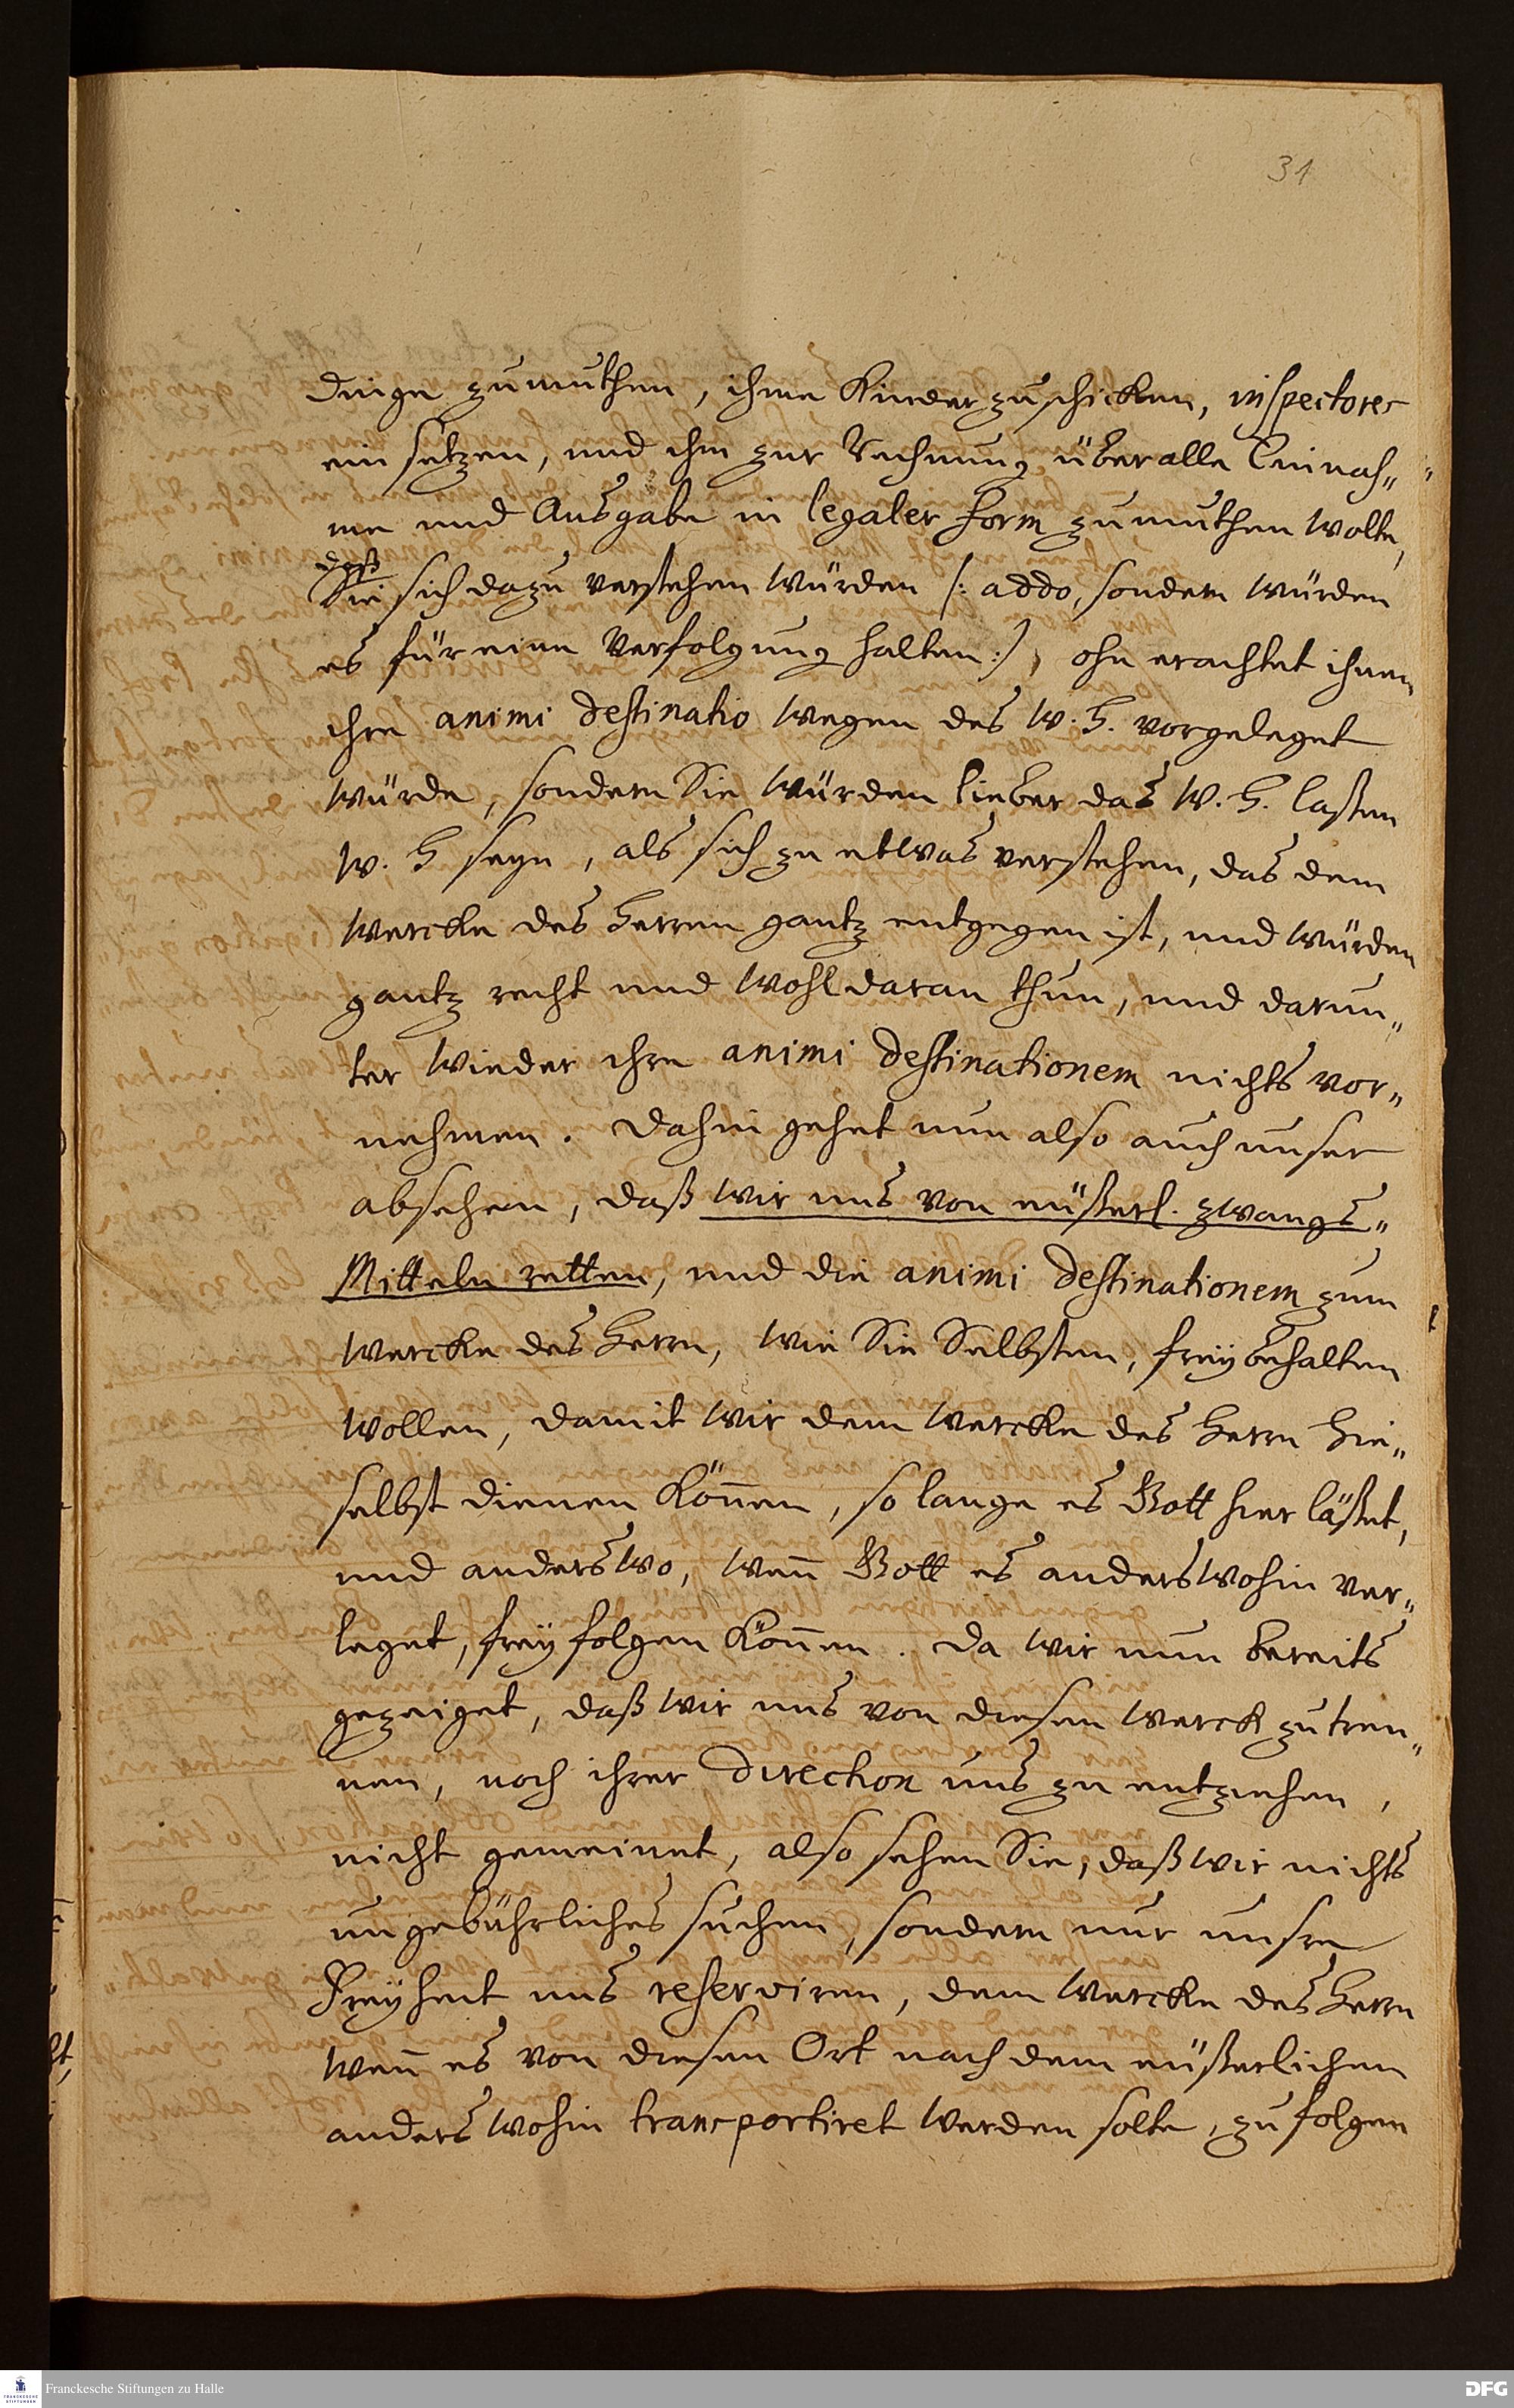 31
dinge zumuthen, ihme Kinder zuschicken, inspectores
ein setzen, und ihm zur Rechnung über alle Einnah„
me und Ausgabe in legaler form zumuthen wolte,
daß
Sie sich dazu verstehen würden /: addo, sondern würden
es für eine Verfolgung halten :/, ohnerachtet ihnen
ihre animi destinatio wegen des W. H. vorgeleget
würde, sondern Sie würden lieber das W. H. laßen
W. H seyn, als sich zu etwas verstehen, das dem
Wercke des Herren gantz entgegen ist, und würden
gantz recht und wohl daran thun, und darun„
ter wieder ihre animi destinationem nichts vor„
nehmen. Dahin gehet nun also auch unser
absehen, daß wir uns von eüßerl. zwangs„
Mitteln retten, und die animi destinationem zum
Wercke des Herrn, wie Sie Selbsten, frey behalten
wollen, damit wir dem Wercke des Herrn hie„
selbst dienen können, so lange es Gott hier läßet,
und anderswo, wen̄ Gott es anderswohin ver„
leget, frey folgen können. Da wir nun bereits
gezeiget, daß wir uns von diesen Werck zu tren„
nen, noch ihrer direction uns zu entziehen,
nicht gemeinet, also sehen Sie, daß wir nichts
ungebührliches suchen, sondern nur unsre
Freyheit uns reserviren, dem Wercke des Herrn
wen̄ es von diesen Ort nach dem eüßerlichen
anders wohin transportiret werden solte, zu folgen
Franckesche Stiftungen zu Halle
DFG